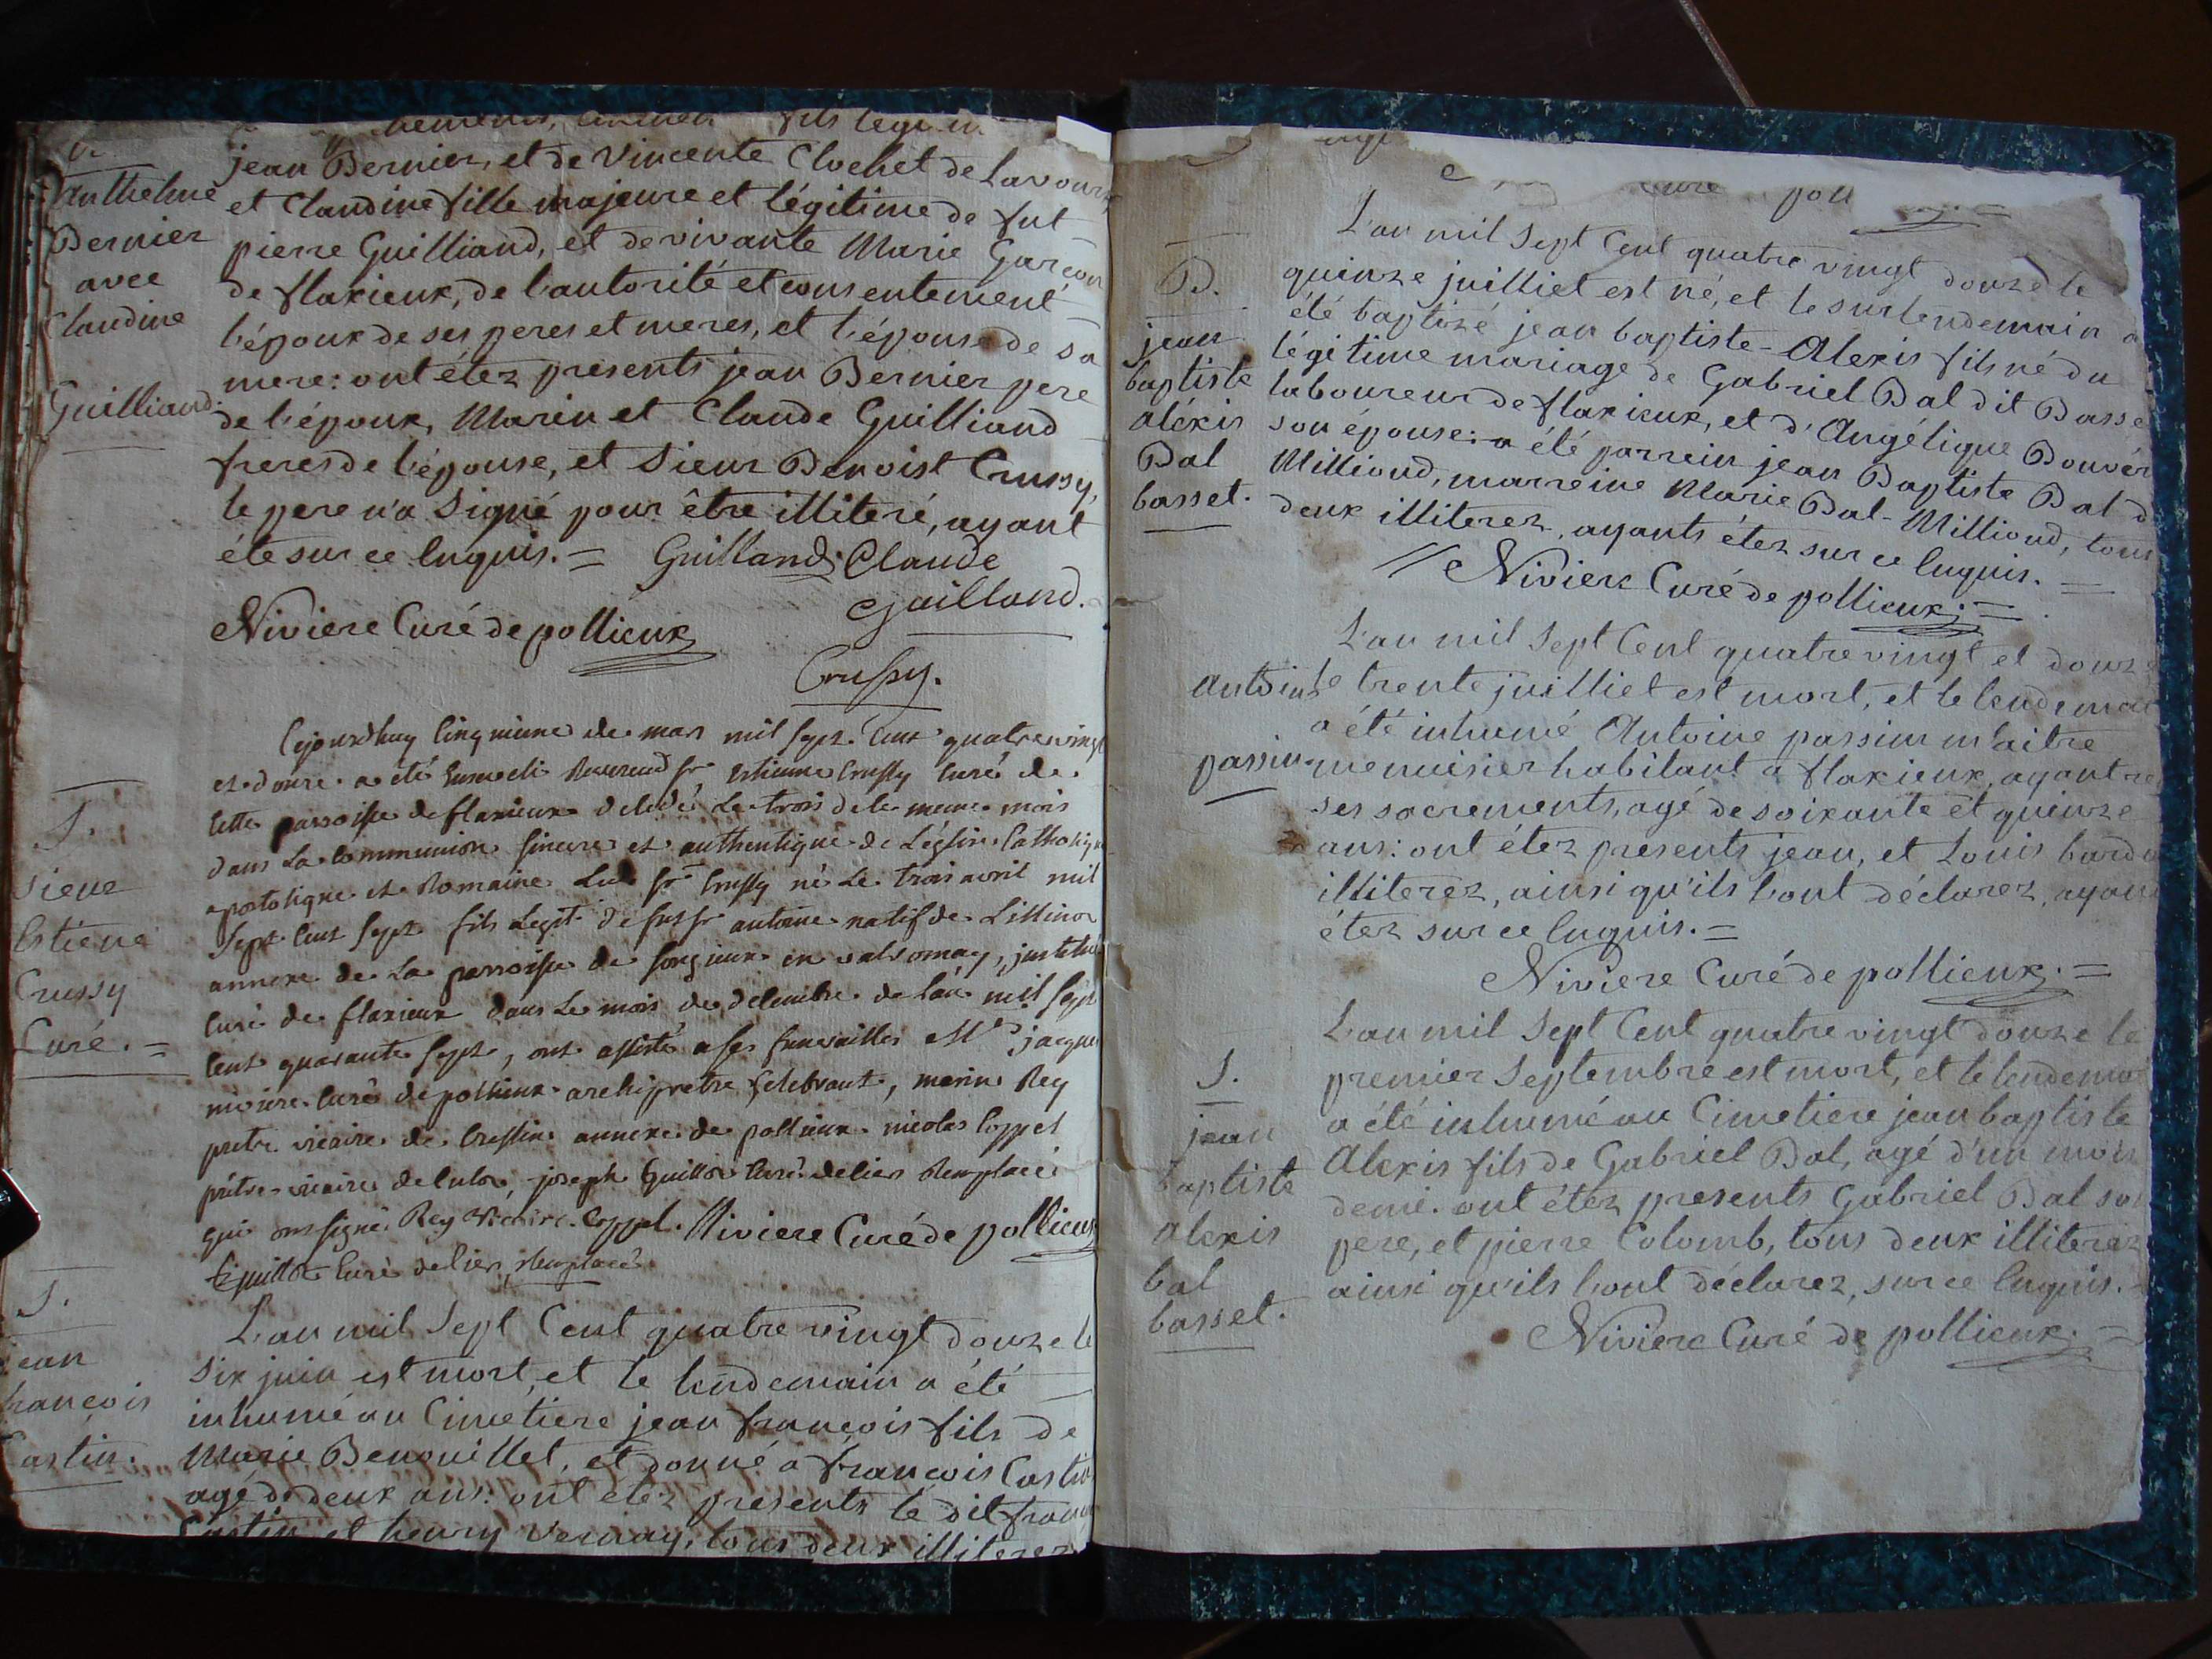 fils legi
jean Bernier, et de Vincente Clochet de Lavours
et Claudine fille majeure et légitime de fut
pierre Guilliand, et de vivante Marie Garçon
de flaxieux, de l'autorité et consentement
l'époux de ses peres et meres, et l'épouse de sa
mere: ont étez presents jean Bernier pere
de l'époux, Marin et Claude Guilliand
freres de l'épouse, et Sieur Benoist Crussy,
le pere n'a Signé pour être illiteré, ayant
été sur ce Enquis. = Guilland Claude
Guilland.
Niviere Curé de pollieux
Crussy.
Anthelme
Bernier
avec
Claudine
Guilliand.
Cejourdhuy Cinquieme de mars mil sept Cent quatre vingt
et douze a été Enseveli Reverend sr Estienne Crussy Curé de
cette parroisse de flaxieux décédé Le trois de le meme mois
dans La Communion sincere et authentique de L'église Catholique
apostolique et Romaine Led sr Crussy né Le trois avril mil
sept Cent sept fils Legit de fut sr antoine natif de
annexe de La parroisse de songieux en valromey, institué
Curé de flaxieux dans Le mois de décembre de L'an mil sept
Cent quarante sept, ont assisté a ses funerailles Mrs jacques
niviere Curé de pollieux archipretre Celebrant, marin Rey
pretre vicaire de Cressin annexe de pollieux nicolas Coppel
prêtre vicaire de Culoz, joseph Guillot Curé de lier Remplacé
qui ont signé Rey Vicaire. Coppel. Niviere Curé de pollieux
Guillot Curé de lier, Remplacé
S.
Sieur
Estiene
Crussy
Curé. =
L'an mil Sept Cent quatre vingt douze le
Six juin est mort, et le lendemain a été
inhumé au Cimetiere jean françois fils de
Marie Benouillet, et donné a françois Castin
agé de deux ans: ont étez presents le dit fran
Castin et henry Vernay, tous deux illiterez
S.
jean
françois
Castin.
Curé poll
L'an mil Sept Cent quatre vingt douze le
quinze juilliet est né, et le surlendemain a
été baptizé jean baptiste-Alexis fils né du
légitime mariage de Gabriel Bal dit Basse
laboureur de flaxieux, et d'Angélique Bouvér
son épouse: a été parrein jean Baptiste Bal d
Milliond, marreine Marie Bal-Milliond, tous
deux illiterez, ayants étez sur ce Enquis. =
Niviere Curé de pollieux. =
B.
jean
baptiste
aléxis
Bal
basset.
L'an mil Sept Cent quatre vingt et douze
le trente juilliet est mort, et le lendemai
a été inhumé Antoine passin maitre
menuisier habitant a flaxieux, ayant re
ses sacrements, agé de soixante et quinze
ans: ont étez presents jean, et Louis bard
illiterez, ainsi qu'ils l'ont déclarez, ayan
étez sur ce Enquis. =
Niviere Curé de pollieux. =
Antoine
passin.
L'an mil Sept Cent quatre vingt douze le
premier Septembre est mort, et le lendemai
a été inhumé au Cimetiere jean baptiste
Alexis fils de Gabriel Bal, agé d'un mois
demi. ont étez presents Gabriel Bal son
pere, et pierre Colomb, tous deux illiterez
ainsi qu'ils l'ont déclarez, sur ce Enquis. =
Niviere Curé de pollieux. =
S.
jean
baptiste
Alexis
bal
basset.